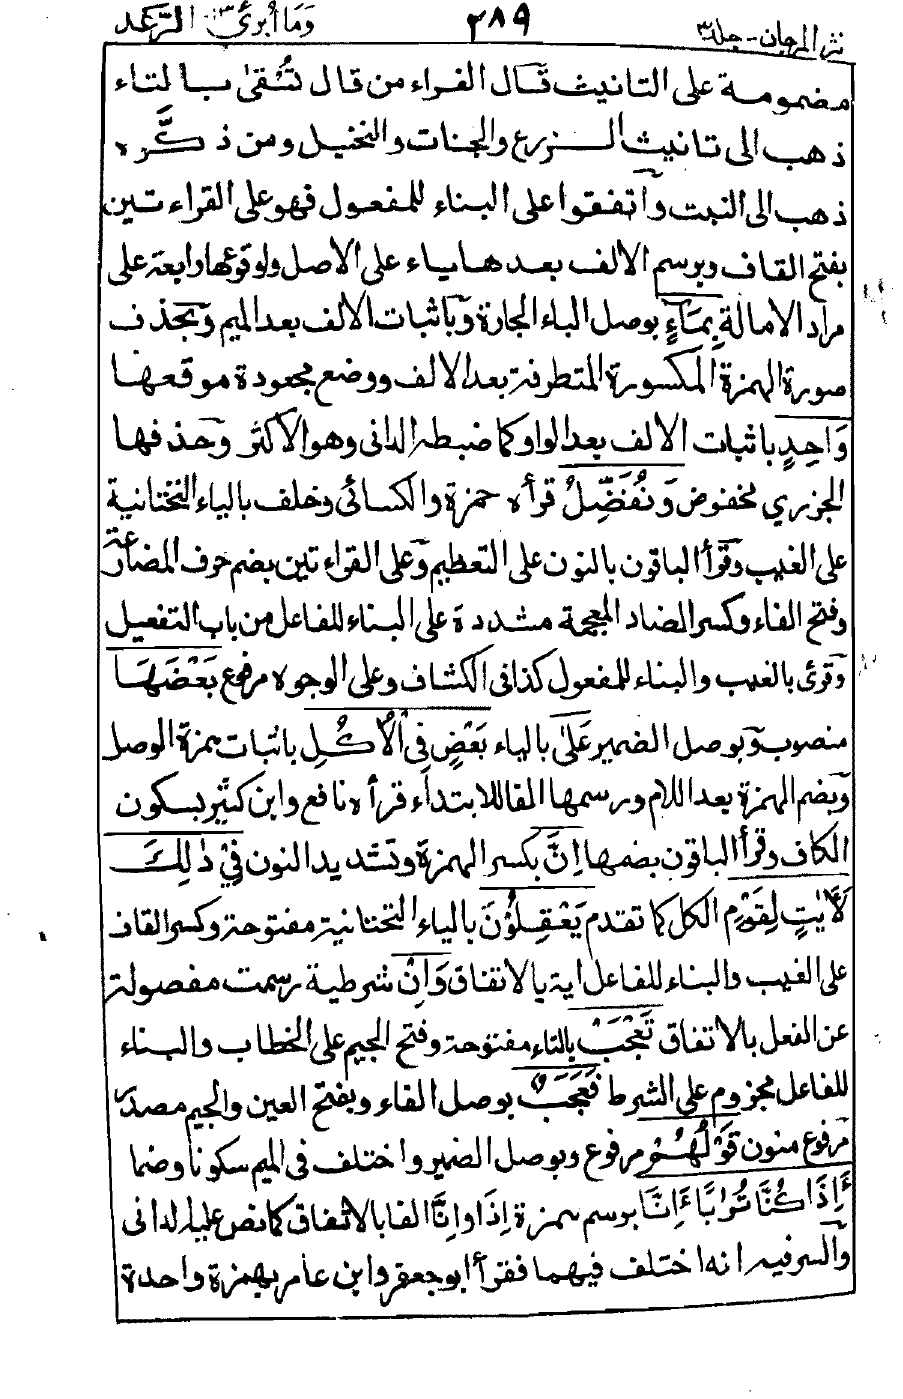 نثر المرجان - جلد ٣ ٢٨٩ وَمَا أُبَرِّئُ ١٣ الرَّعد
مضمومة على التانيث قَال الفراء من قال تُسْقىٰ بالتاء
ذهب الى تانيث الزرع والجنات والنخيل ومن ذكَّره
ذهب الى النبت واتفقوا على البناء للمفعول فهو على القراءتين
بفتح القاف وبرسم الالف بعدها ياء على الاصل ولوقوعها رابعة على
مراد الامالة بِمَاءٍ بوصل الباء الجارة وباثبات الالف بعد الميم وبحذف
صورة الهمزة المكسورة المتطرفة بعد الالف ووضع مجعودة موقعها
وَاحِدٍ باثبات الالف بعد الواو كما ضبطه الدانى وهو الاكثر وحذفها
الجزري مخفوض وَنُفَضِّلُ قرأه حمزة والكسائى وخلف بالياء التختانية
على الغيب وقرأ الباقون بالنون على التعظيم وعلى القراءتين بضم حرف المضارعة
وفتح الفاء وكسر الضاد المعجمة مشددة على البناء للفاعل من باب التفعيل
وقرئ بالغيب والبناء للمفعول كذا فى الكشاف وعلى الوجوه مرفوع بَعْضَهَا
منصوب وبوصل الضمير عَلىٰ بالياء بَعْضٍ فِي الْأُكُلِ باثبات همزة الوصل
وبضم الهمزة بعد اللام ورسمها الفا للابتداء قرأه نافع وابن كثير بسكون
الكاف وقرأ الباقون بضمها اِنَّ بكسر الهمزة وتشديد النون فِيْ ذٰلِكَ
لَاٰيٰتٍ لِقَوْمٍ الكل كما تقدم يَعْقِلُوْنَ بالياء التختانية مفتوحة وكسر القاف
على الغيب والبناء للفاعل اية بالاتفاق وَاِنْ شرطية رسمت مفصولة
عن الفعل بالاتفاق تَعْجَبْ بالتاء مفتوحة وفتح الجيم على الخطاب والبناء
للفاعل مجزوم على الشرط فَعَجَبٌ بوصل الفاء وبفتح العين والجيم مصدر
مرفوع منون قَوْلُهُمْ مرفوع وبوصل الضمير واختلف فى الميم سكونا وضما
ءَاِذَا كُنَّا تُرَابًا ءَاِنَّا برسم همزة اِذَا واِنَّا الفا بالاتفاق كما نص عليه الدانى
والسر فيه انه اختلف فيهما فقرأ ابو جعفر وابن عامر بهمزة واحدة